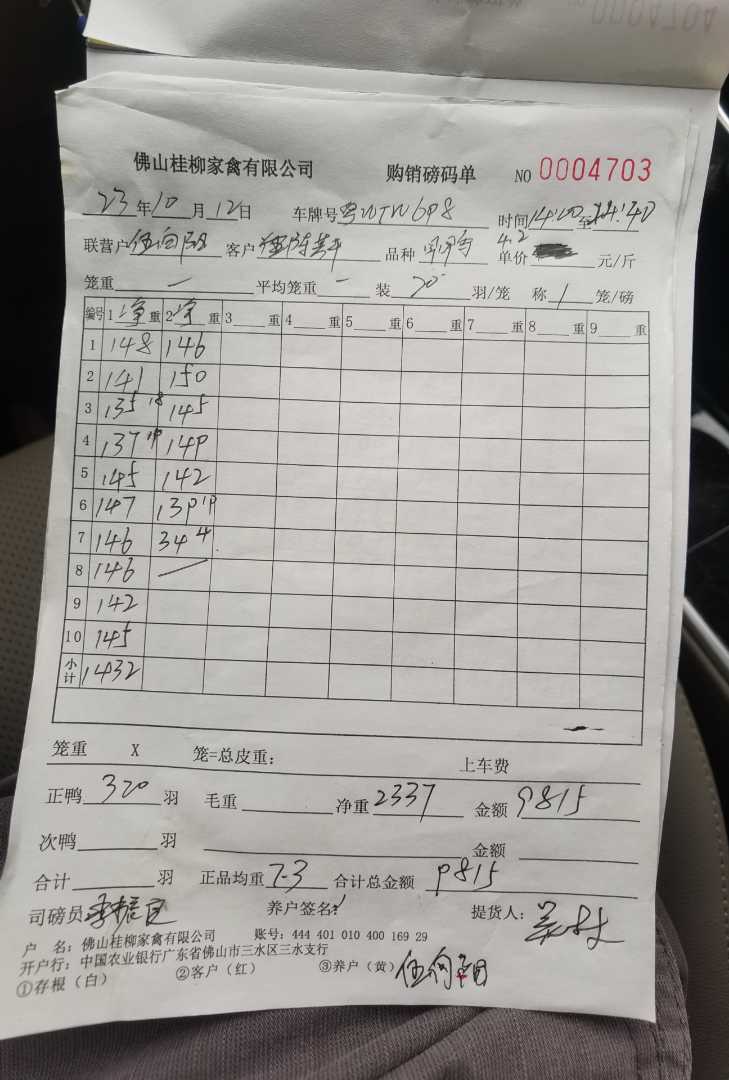 0004704
佛山桂柳家禽有限公司 购销磅码单 NO 0004703
23年10月12日 车牌号粤WTW6P8 时间14:00至14:40
联营户 客户 品种 单价4.2元/斤
笼重一 平均笼重一 装20羽/笼 称1笼/磅
编号 1净重 2净重 3重 4重 5重 6重 7重 8重 9重
1 148 146
2 141 150
3 135 18 145
4 137 19 149
5 145 142
6 147 139 19
7 146 34 4
8 146 —
9 142
10 145
小计 1432
笼重 X 笼=总皮重: 上车费
正鸭320羽 毛重 净重2337 金额9815
次鸭 羽 金额
合计 羽 正品均重7.3 合计总金额 9815
司磅员 养户签名: 提货人:
户 名:佛山桂柳家禽有限公司 账号:444 401 010 400 169 29
开户行:中国农业银行广东省佛山市三水区三水支行
①存根(白) ②客户(红) ③养户(黄)